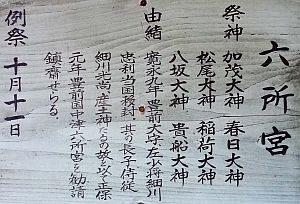 六所宮
祭神 加茂大神 春日大神
松尾大神 稲荷大神
八坂大神 貴船大神
由緒
寛永九年豊前太守左少将細川
忠利当国移封、其の長子侍従
細川光尚産土神たるの故を以て正保
元年豊前国中津六所宮を勧請
鎮斎せらる。
例祭 十月十一日